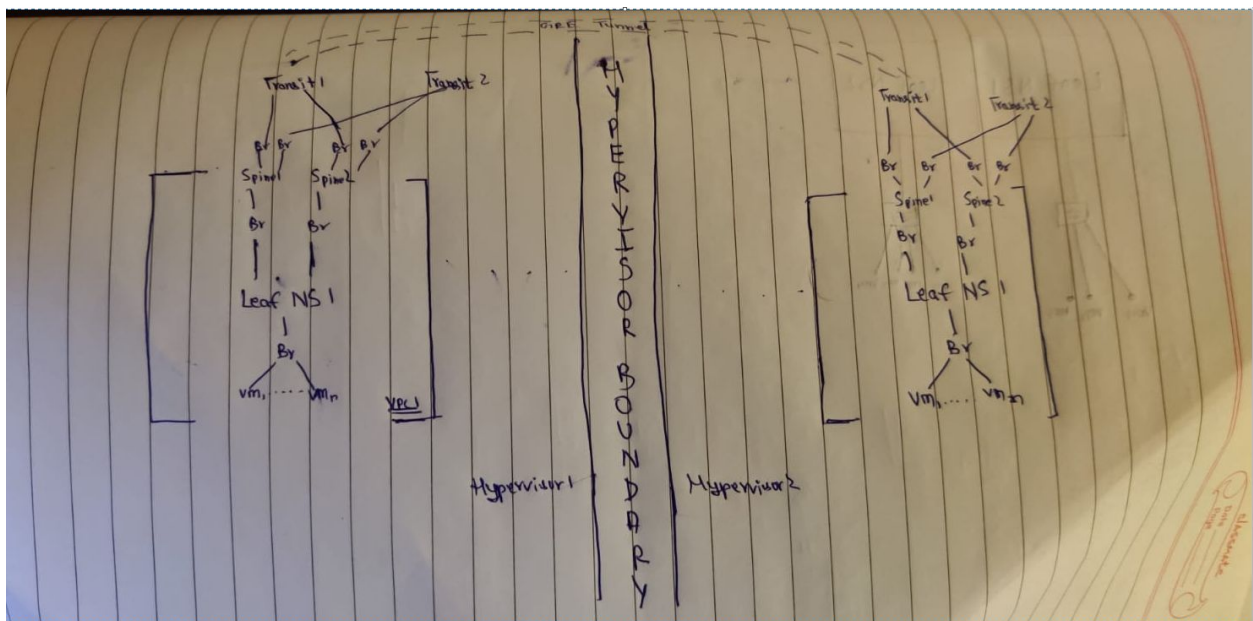 GRE Tunnel
Transit1 Transit 2
Br Br Br Br
Spine1 Spine2
Br Br
Leaf NS 1
Br
Vm1 ...... Vmn
VPC1
Hypervisor1
HYPERVISOR BOUNDARY
Transit1 Transit 2
Br Br Br Br
Spine1 Spine2
Br Br
Leaf NS 1
Br
Hypervisor2
classmate
Date
Page